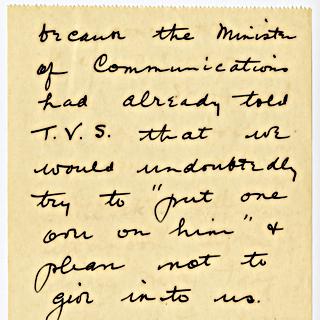 because the Minister
of Communications
had already told
T.V.S. that we
would undoubtedly
try to "put one
over on him" &
please not to
give in to us.